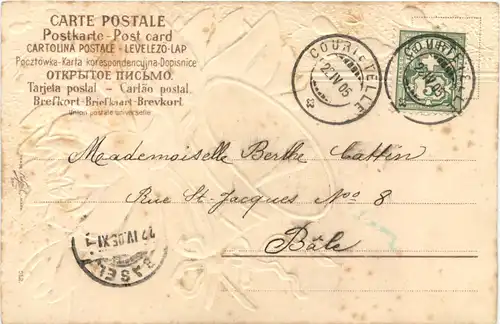 CARTE POSTALE
Postkarte - Post card
CARTOLINA POSTALE - LEVELEZO-LAP
Pocztówka-Karta korespondencyjna-Dopisnice
ОТКРЫТОЕ ПИСЬМО.
Tarjeta postal - Cartão postal
Brefkort-Briefkaart-Brevkort.
Union postale universelle
COURTETELLE
22.IV.05
COURTETELLE
5
Mademoiselle Berthe Cattin
Rue St-Jacques No 8
Bâle
22.IV.05.XI
BASEL